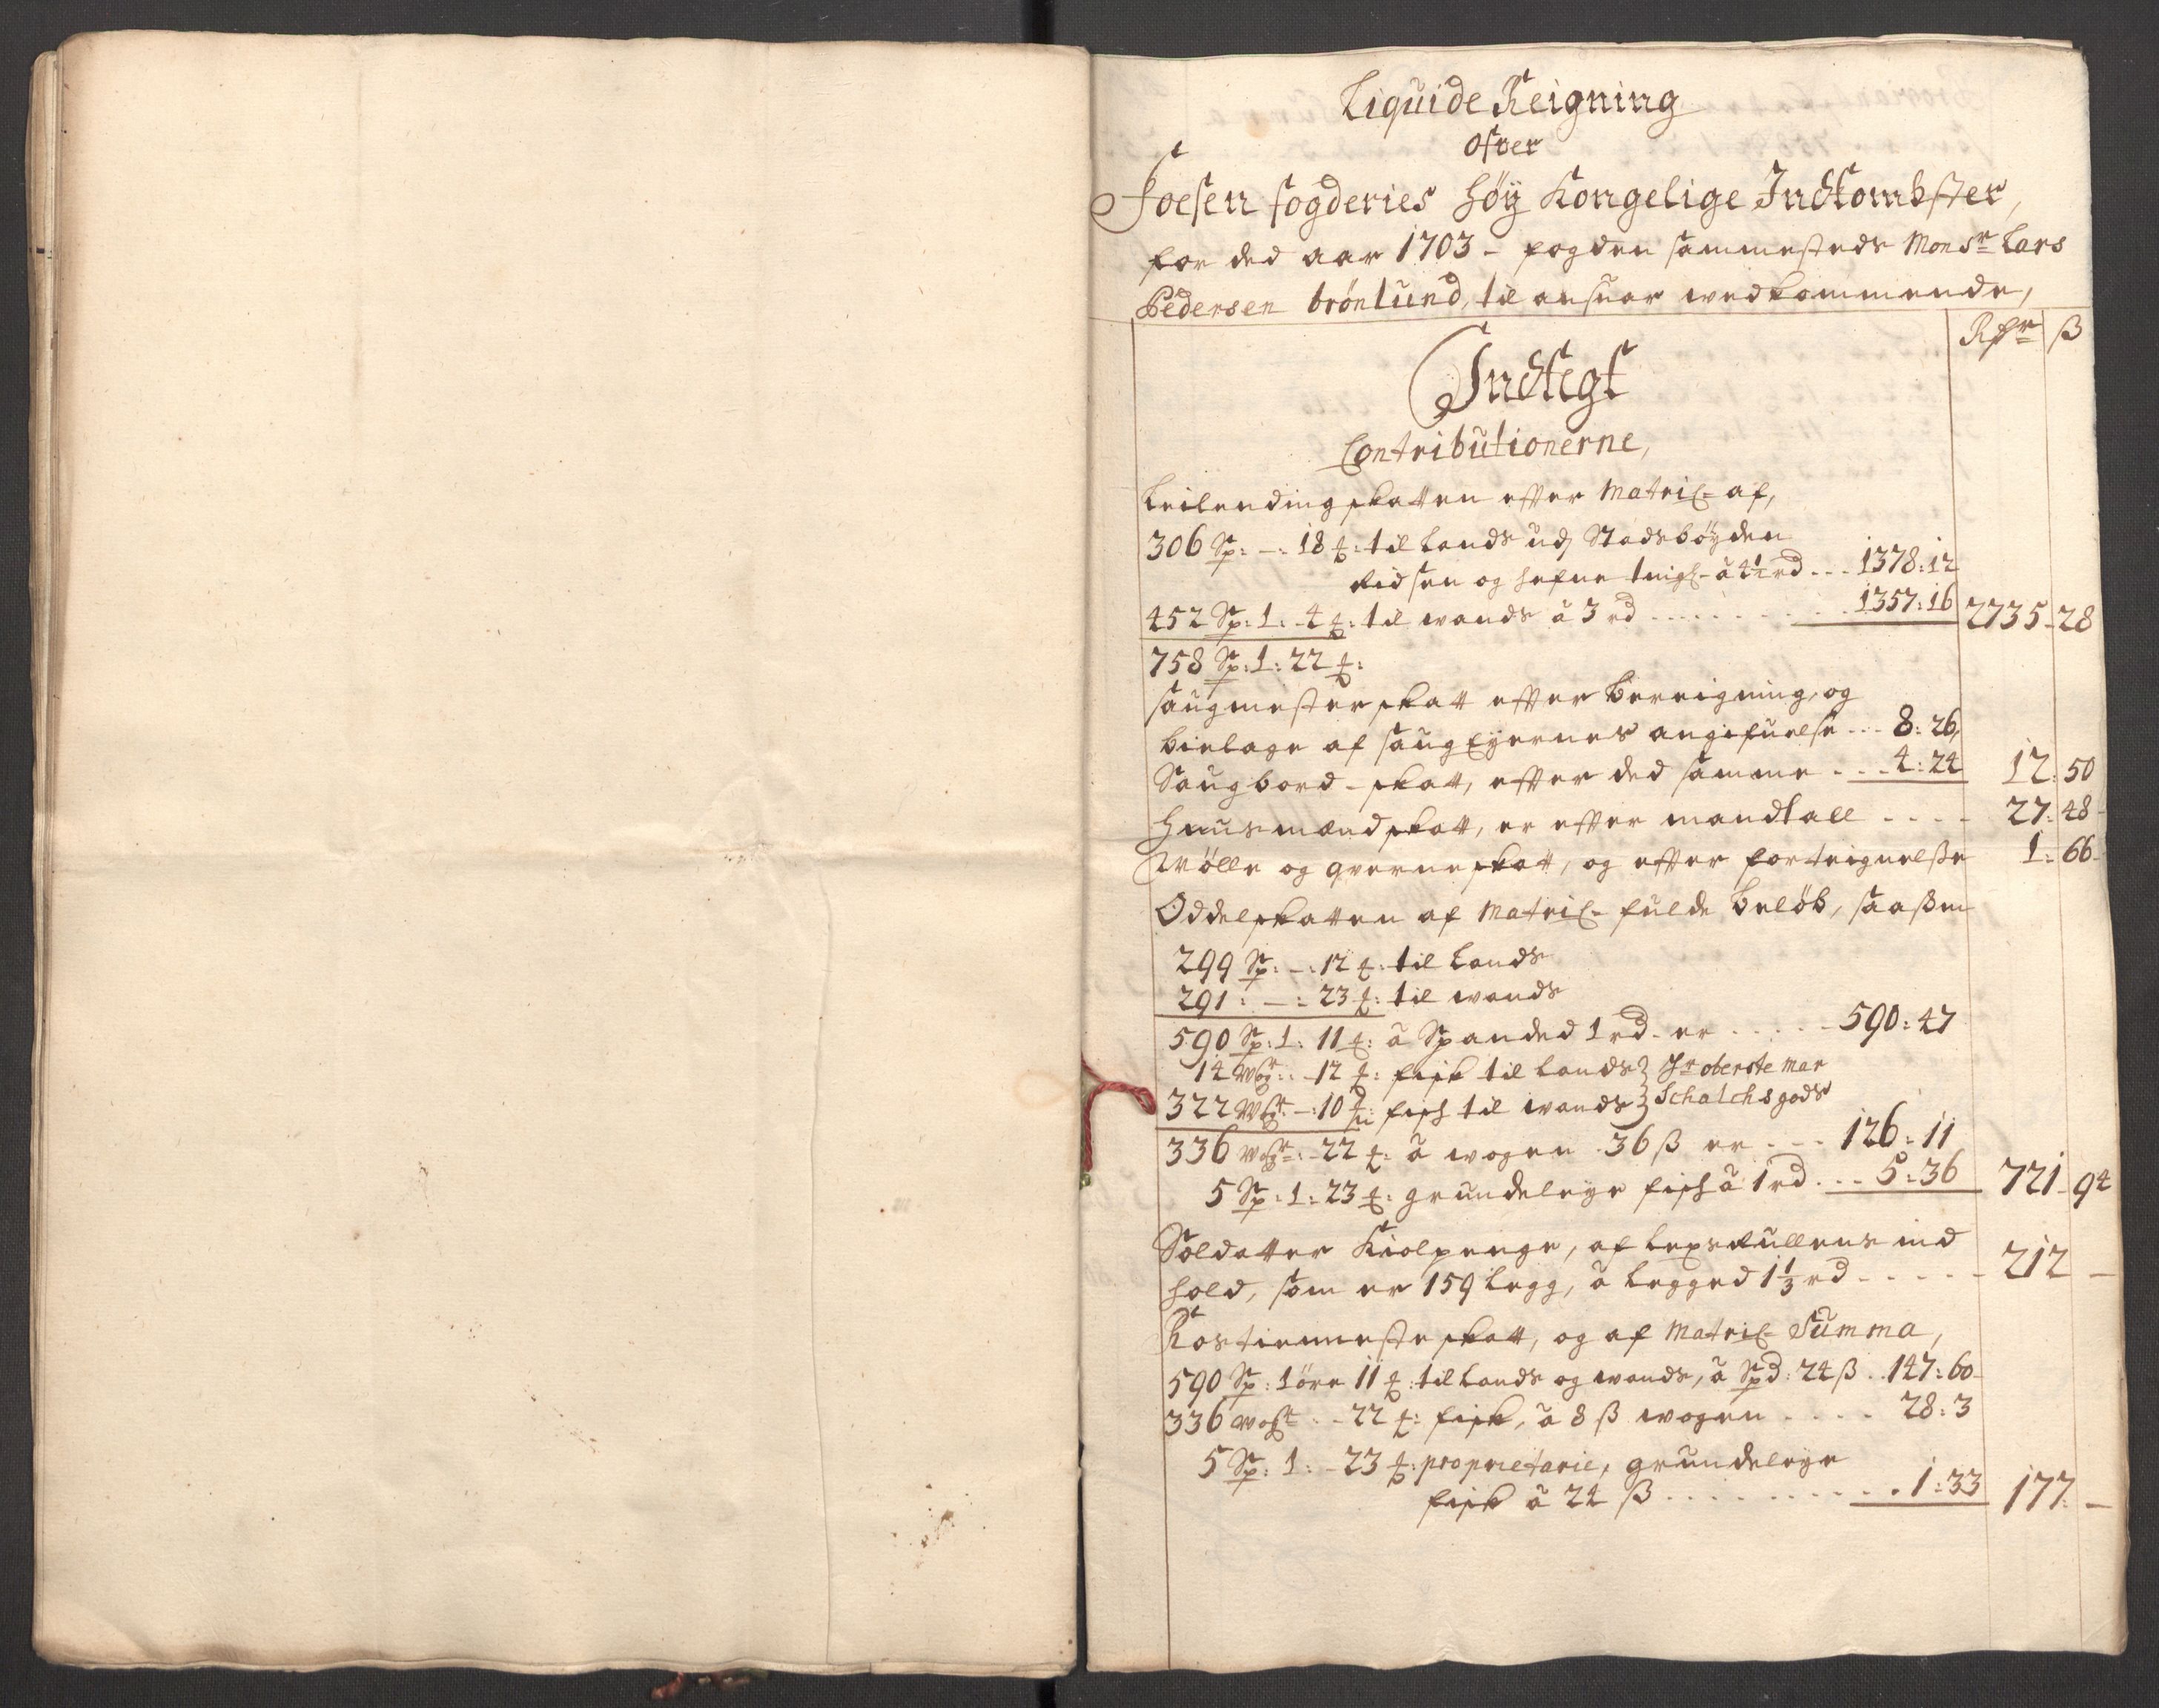 Liquide Reigning
Ofver
Foesen fogderies höÿ Kongelige Indkombster,
for ded aar 1703 - fogden sammesteds Monsr Lars
Pedersen brönlund, til ansvar vedkommende,
Rdr ß
Indtegt
Contributionerne,
Leilending skatten effter Matric- af,
306 Sp: -: 18 ₰: til Lands udj Stadsböyden
Ridsen og Hefne tingl- â 4½ rd - - - 1378: 12
452 Sp: 1: 4 ₰: til vands â 3 rd - - - 1357: 16 2735 - 28
758 Sp: 1: 22 ₰:
Saugmesterskatt effter bereigning, og
bielage af Saug Eÿernes angifvelse - - - 8: 26
Saugbord-skatt, effter ded samme - - - 4: 24 12: 50
Huusmændskatt, er effter mandtall - - - - 27: 48
Mölle og qverneskatt, og effter forteignelse 1: 66
Oddelskatten af Matric- fulde beløb, saasom
299 Sp: -: 12 ₰: til Lands
291: -: 23 ₰: til vands
590 Sp: 1: 11 ₰: â Spanded 1 rd- er - - - - - 590: 47
14 Wog: - 12 ₰: fisk til Lands Hr oberste Mar
322 Wog: -: 10 ₰: fisk til vands Schalchs gods
336 Wog: - 22 ₰: â wogen 36 ß er - - - 126: 11
5 Sp: 1: 23 ₰: grundeleÿe fisk â 1 rd - - - 5: 36 721 - 94
Soldatter Kiolpenge, af Legsrullens ind
hold, som er 159 Legg, â Legged 1⅓ rd - - - - - 212 -
Rostienneste skatt, og af Matric- Summa,
590 Sp: 1 öre 11 ₰: til Lands og vands, â Spd: 24 ß - - 147: 60
336 Wog - 22 ₰: fisk, â 8 ß wogen - - - - 28: 3
5 Sp: 1: - 23 ₰: proprietarie, grundeleÿe
fisk â 24 ß - - - - - - - - - 1: 33 177: -